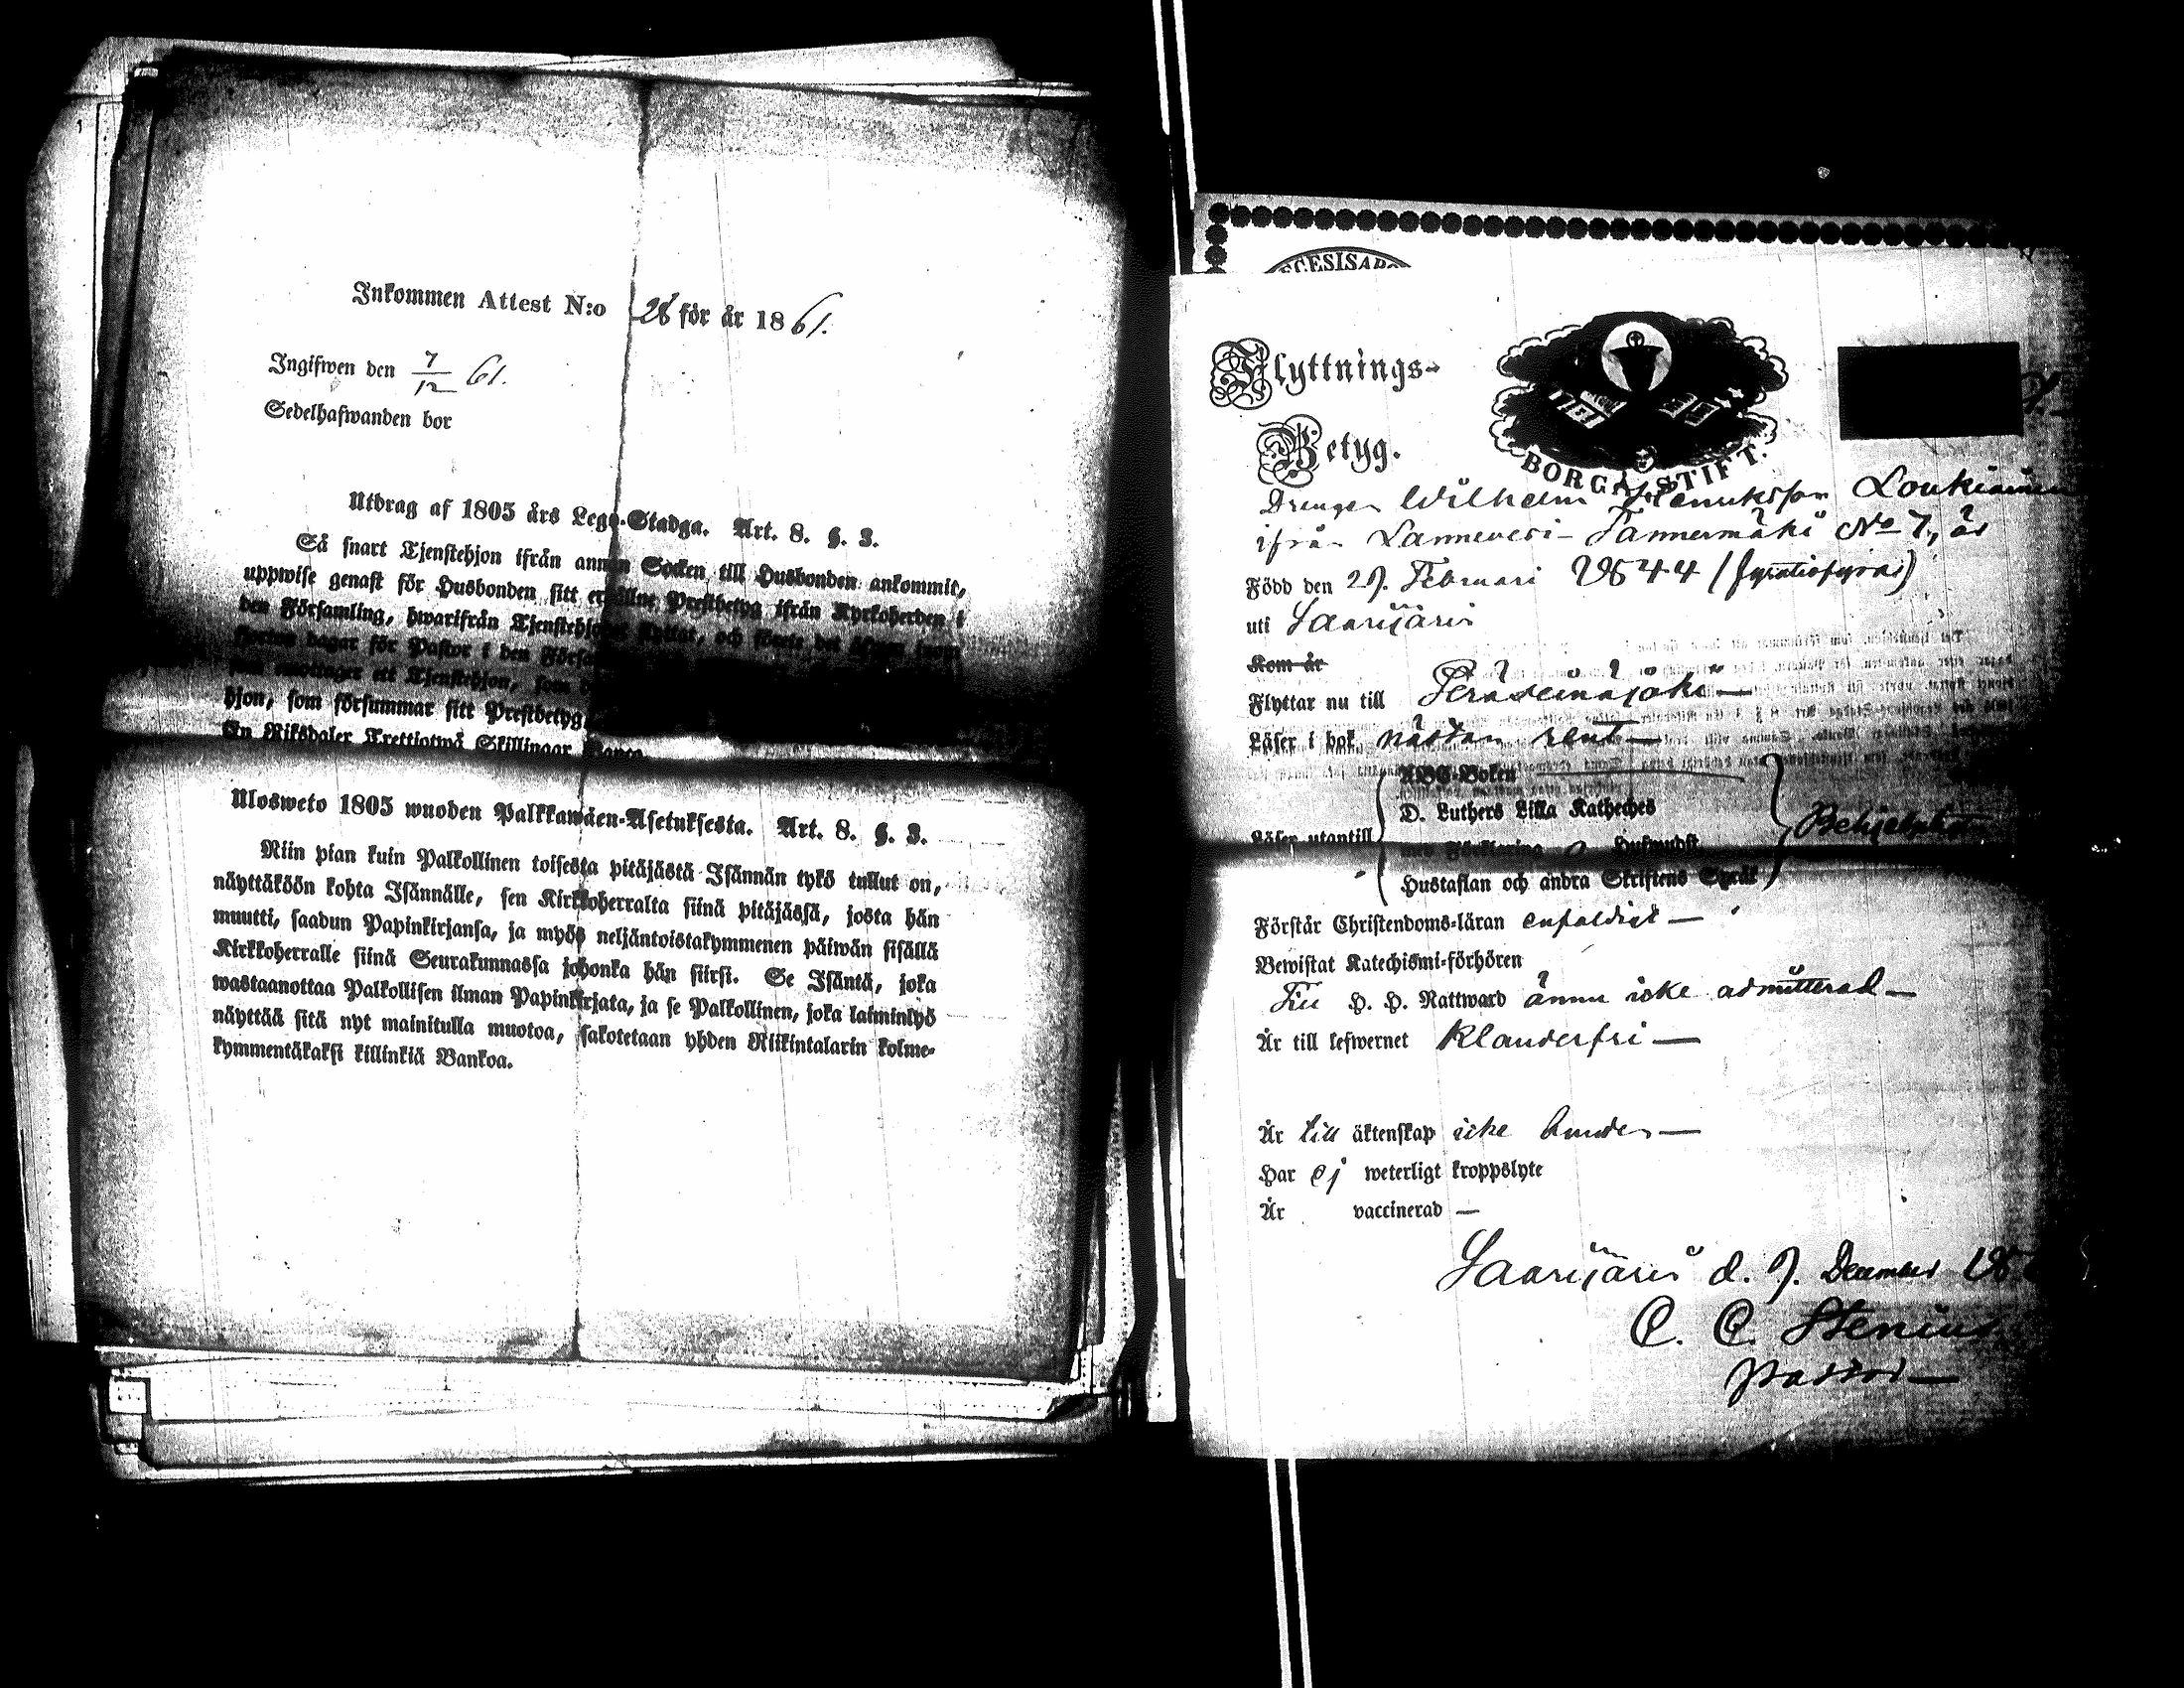 Inkommen Attest N:o 28 för år 1861.
Ingifwen den 7/12 61.
Sedelhafwanden bor
Utdrag af 1805 års Lego-Stadga. Art. 8. §. 3.
Så snart Tjenstehjon ifrån annan Socken till Husbonden ankommit,
uppwise genast för Husbonden sitt erhållne Prestbetyg ifrån Kyrkoherden i
den Församling, hwarifrån Tjenstehjonet flyttat, och förete det inom
fjorton dagar för Pastor i den
som emottager ett Tjenstehjon, som
hjon, som försummar sitt Prestbetyg,
En Riksdaler Trettiotwå Skillingar Banco
Ulosweto 1805 wuoden Palkkawäen-Asetuksesta. Art. 8. §. 3.
Niin pian kuin Palkollinen toisesta pitäjästä Isännän tykö tullut on,
näyttäköön kohta Isännälle, sen Kirkkoherralta siinä pitäjässä, josta hän
muutti, saadun Papinkirjansa, ja myös neljäntoistakymmenen päiwän sisällä
Kirkkoherralle siinä Seurakunnassa johonka hän siirsi. Se Isäntä, joka
wastaanottaa Palkollisen ilman Papinkirjata, ja se Palkollinen, joka laiminlyö
näyttää sitä nyt mainitulla muotoa, sakotetaan yhden Riikintalarin kolme-
kymmentäkaksi killinkiä Bankoa.
Flyttnings-
Betyg.
BORGÅ STIFT.
Drengen Wilhelm Henriksson Loukiainen
ifrån Lannevesi Tannermäki No 7, är
Född den 27. Februari 1844 (fyratiofyra)
uti Saarijärvi
Kom år
Flyttar nu till Peräseinäjoki —
Läser i bok nästan rent —
ABC-Boken
D. Luthers Lilla Katheches
Läser utantill
med Förklaring o Hufwudst.
Hustaflan och andra Skriftens Språk
Förstår Christendoms-läran enfaldigt —
Bewistat Katechismi-förhören
Till H. H. Nattward ännu icke admitterad —
Är till lefwernet klanderfri —
Är till äktenskap icke bunden —
Har ej weterligt kroppslyte
Är vaccinerad —
Saarijärvi d. 7. December 18
C. C. Stenius
Pastor —